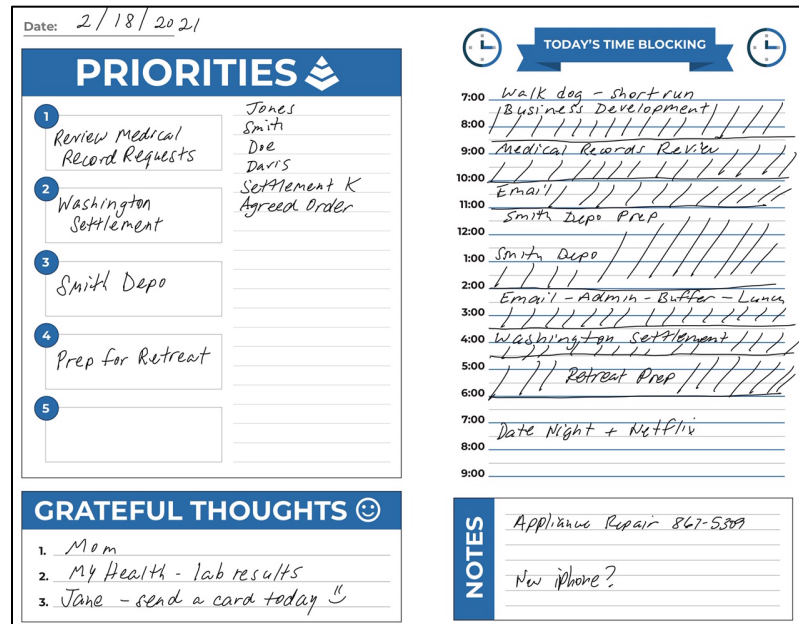 Date: 2/18/2021
PRIORITIES
1
Review Medical
Record Requests
2
Washington
Settlement
3
Smith Depo
4
Prep for Retreat
5
Jones
Smith
Doe
Davis
Settlement K
Agreed Order
GRATEFUL THOUGHTS
1. Mom
2. My Health - lab results
3. Jane - send a card today
TODAY'S TIME BLOCKING
7:00 Walk dog - short run
Business Development
8:00
9:00 Medical Records Review
10:00
Email
11:00
Smith Depo Prep
12:00
1:00 Smith Depo
2:00
Email - Admin - Buffer - Lunch
3:00
4:00 Washington Settlement
5:00
Retreat Prep
6:00
7:00
Date Night + Netflix
8:00
9:00
NOTES
Appliance Repair 867-5309
New iphone?